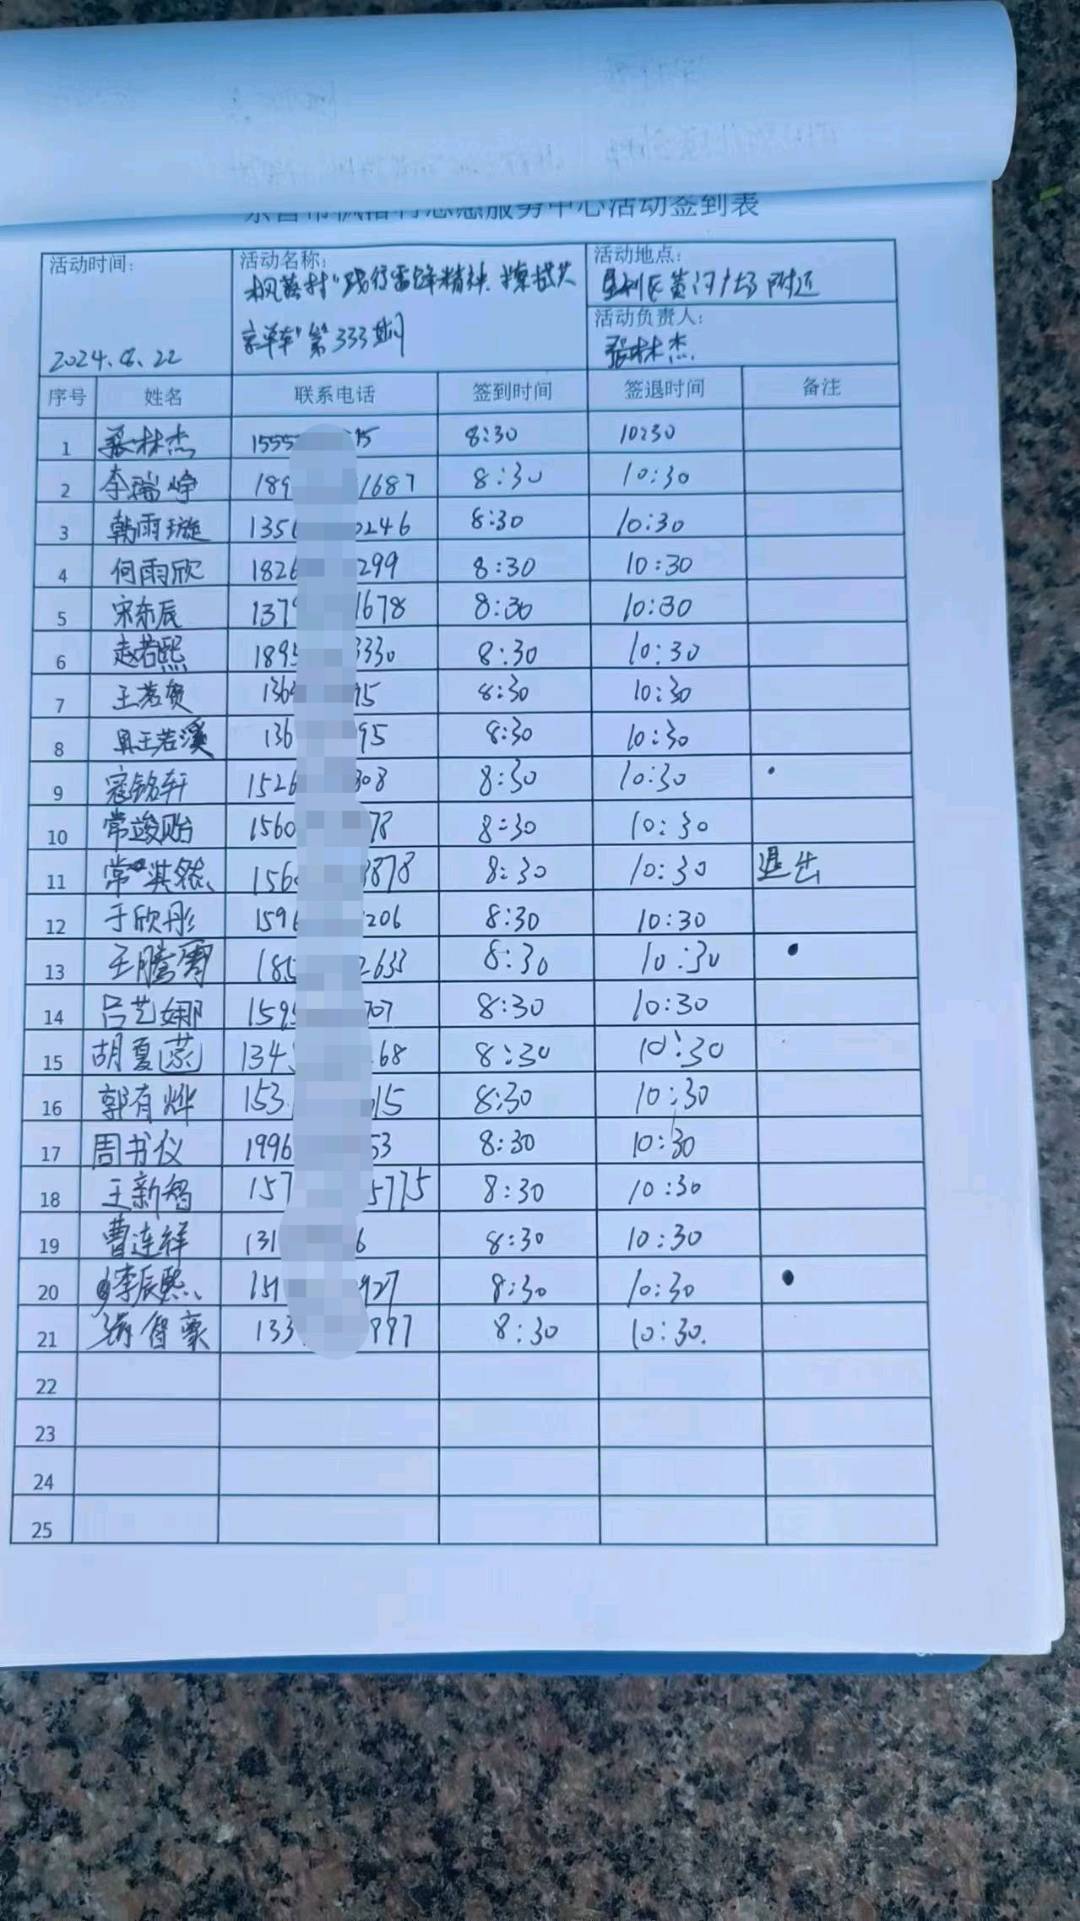 志愿服务中心活动签到表
活动时间:
2024.8.22
活动名称:
枫落村"践行雷锋精神.擦拭共
享单车"第333期
活动地点:
垦利区黄河广场附近
活动负责人:
张林杰
序号 姓名 联系电话 签到时间 签退时间 备注
1 张林杰 1555 95 8:30 10:30
2 李瑞峥 189 1687 8:30 10:30
3 韩雨璇 135 0246 8:30 10:30
4 何雨欣 1826 299 8:30 10:30
5 宋东辰 137 1678 8:30 10:30
6 赵若熙 1895 3330 8:30 10:30
7 王若贺 136 95 8:30 10:30
8 王若溪 136 95 8:30 10:30
9 寇铭轩 1526 308 8:30 10:30
10 常竣贻 1560 78 8:30 10:30
11 常淇铭 156 3878 8:30 10:30 退出
12 于欣彤 1596 206 8:30 10:30
13 王腾霄 185 2633 8:30 10:30
14 吕艺娜 1595 707 8:30 10:30
15 胡夏 134 68 8:30 10:30
16 郭有烨 153 015 8:30 10:30
17 周书仪 1996 53 8:30 10:30
18 王新智 157 5775 8:30 10:30
19 曹连祥 131 6 8:30 10:30
20 李辰熙 151 927 8:30 10:30
21 智豪 133 997 8:30 10:30.
22
23
24
25